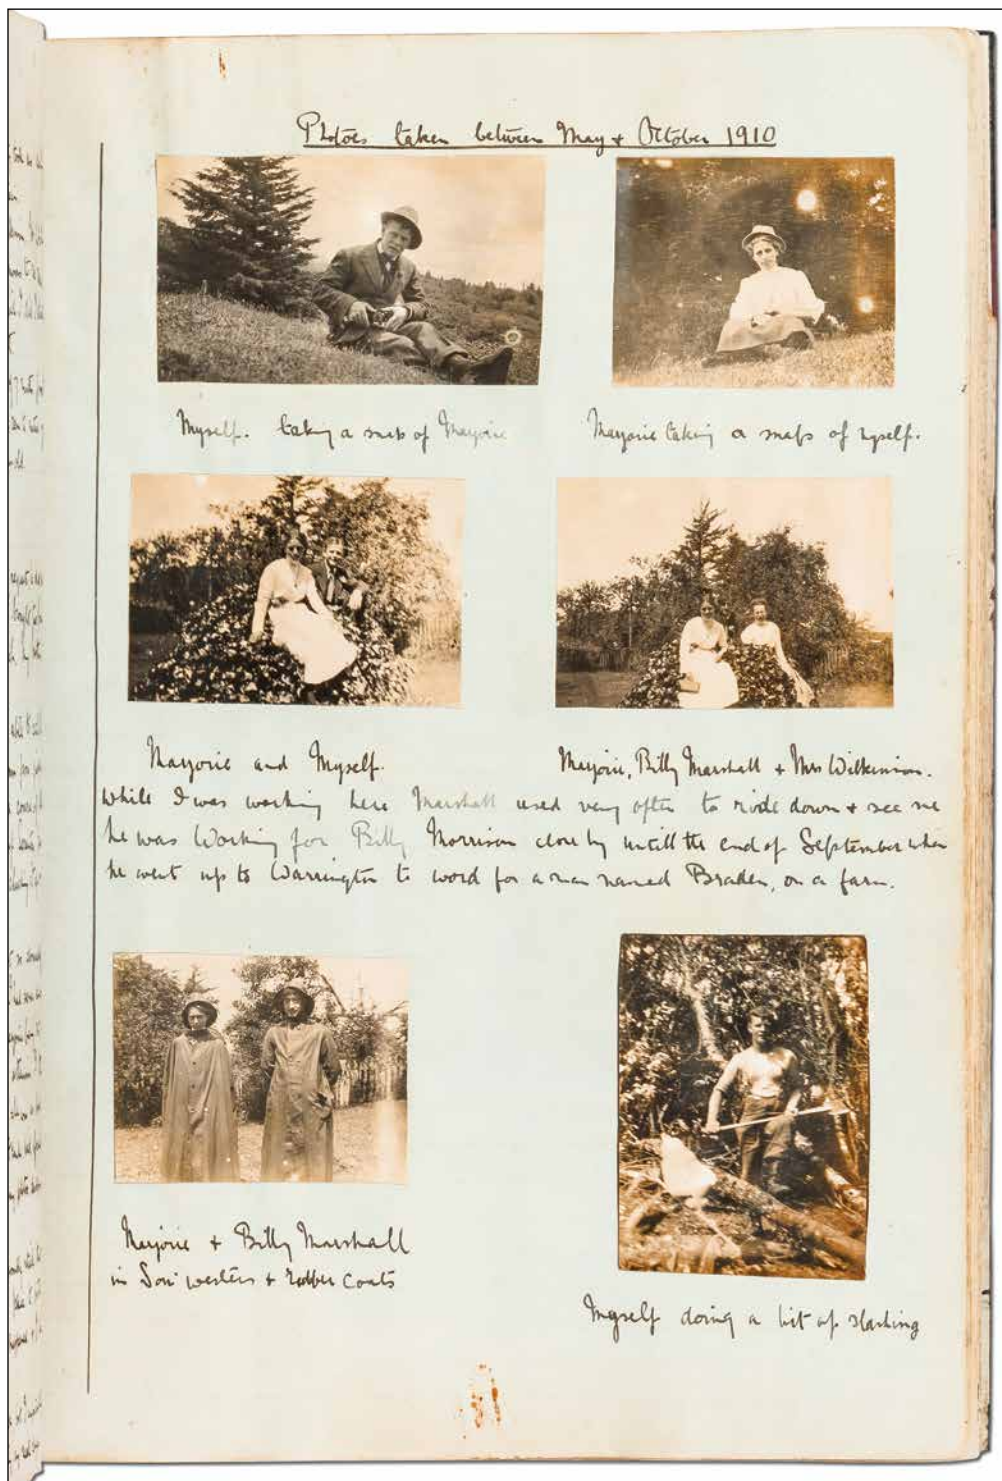 Photoes taken between May & October 1910
Myself. taking a snap of Marjorie
Marjorie taking a snaps of myself.
Marjorie and Myself.
Marjorie, Billy Marshall & Mrs Wilkinson.
While I was working here Marshall used very often to ride down & see me
he was Working for Billy Morrison close by untill the end of September when
he went up to Warrington to word for a man named Braden, on a farm.
Marjorie & Billy Marshall
in Sou'westers & rubber coats
Myself doing a bit of slashing